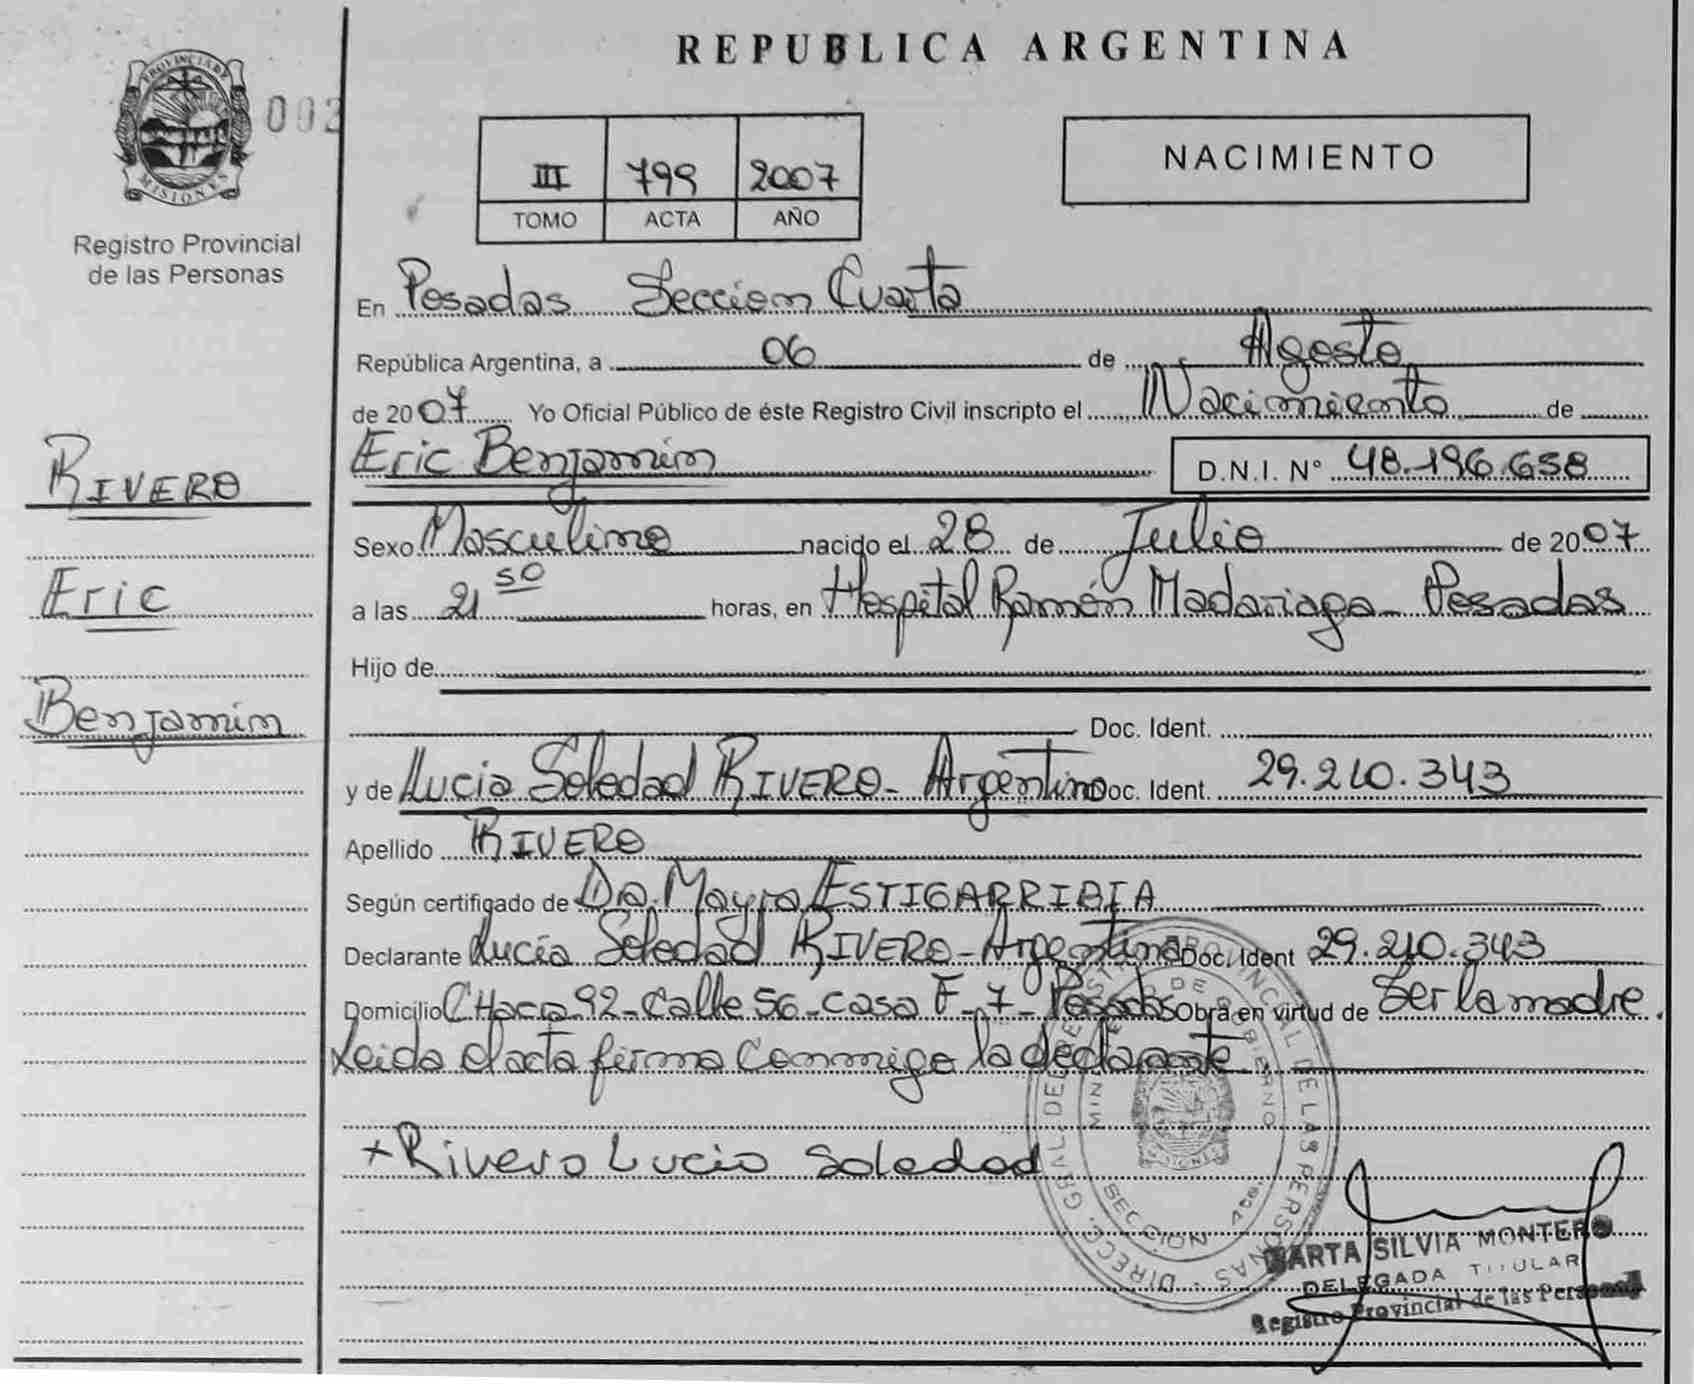 REPUBLICA ARGENTINA
PROVINCIA DE
MISIONES
002
Registro Provincial
de las Personas
III 799 2007
TOMO ACTA AÑO
NACIMIENTO
En Posadas Sección Cuarta
República Argentina, a 06 de Agosto
de 2007 Yo Oficial Público de éste Registro Civil inscripto el Nacimiento de
Eric Benjamín D.N.I. N° 48.196.658
RIVERO
Eric
Benjamín
Sexo Masculino nacido el 28 de Julio de 2007
a las 21 50 horas, en Hospital Ramón Madariaga - Posadas
Hijo de
Doc. Ident.
y de Lucia Soledad RIVERO - Argentina Doc. Ident. 29.210.343
Apellido RIVERO
Según certificado de Dra. Mayra ESTIGARRIBIA
Declarante Lucía Soledad RIVERO - Argentina Doc. Ident 29.210.343
Domicilio CHacra 92 - Calle 56 - casa F - 7 - Posadas Obra en virtud de Ser la madre.
Leida el acta firma Conmigo la declarante.
+ Rivero Lucia Soledad
DIRECC. GRAL. DEL REGISTRO PROVINCIAL DE LAS PERSONAS
MINISTERIO DE GOBIERNO
SECCION 4ta.
MARTA SILVIA MONTERO
DELEGADA TITULAR
Registro Provincial de las Personas